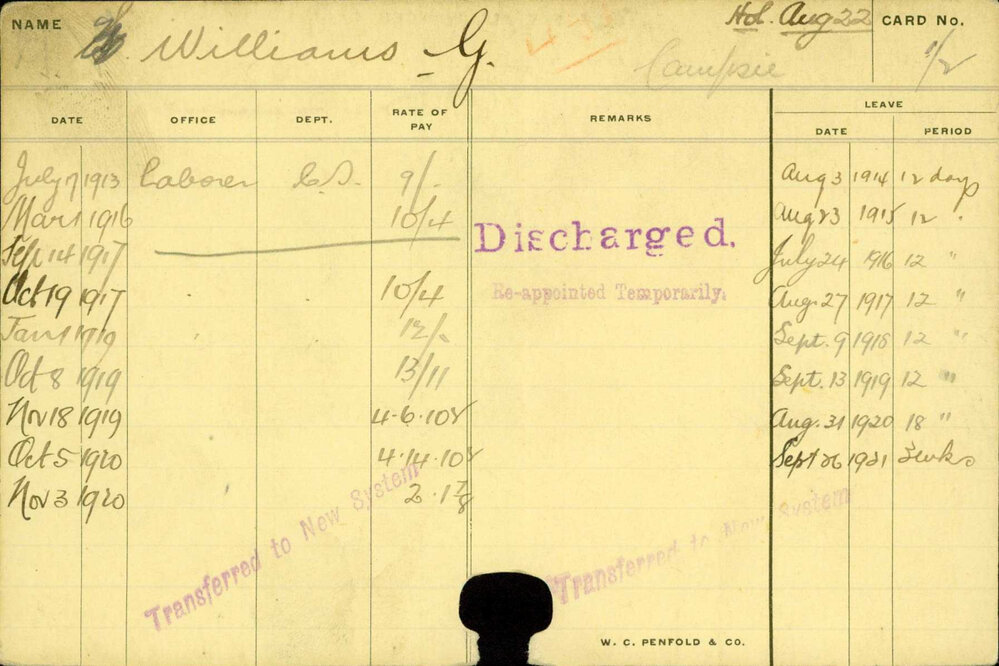 NAME Williams G. Hol. Aug 22 CARD No. 1/2
Campsie
DATE OFFICE DEPT. RATE OF PAY REMARKS LEAVE
DATE PERIOD
July 7 1913 Laborer 9/- Aug 3 1914 12 days
Mar 1 1916 10/4 Aug 23 1915 12 "
Sep 14 1917 Discharged. July 24 1916 12 "
Oct 19 1917 10/4 Re-appointed Temporarily. Aug. 27 1917 12 "
Jan 1 1919 12/- Sept. 9 1918 12 "
Oct 8 1919 13/11 Sept. 13 1919 12 "
Nov 18 1919 4-6-10 Aug. 31 1920 18 "
Oct 5 1920 4.14.10 Sept 26 1921
Nov 3 1920 2.1 7/8
Transferred to New System Transferred to New System
W. C. PENFOLD & CO.